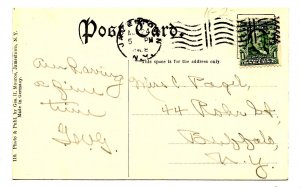 Post Card
This space is for the address only.
Am having
a fine
time
Mrs C Pagel,
44 Rohr St.
Buffalo,
N.Y.
118. Photo & Pub. by Geo. H. Monroe, Jamestown, N. Y.
Made in Germany.